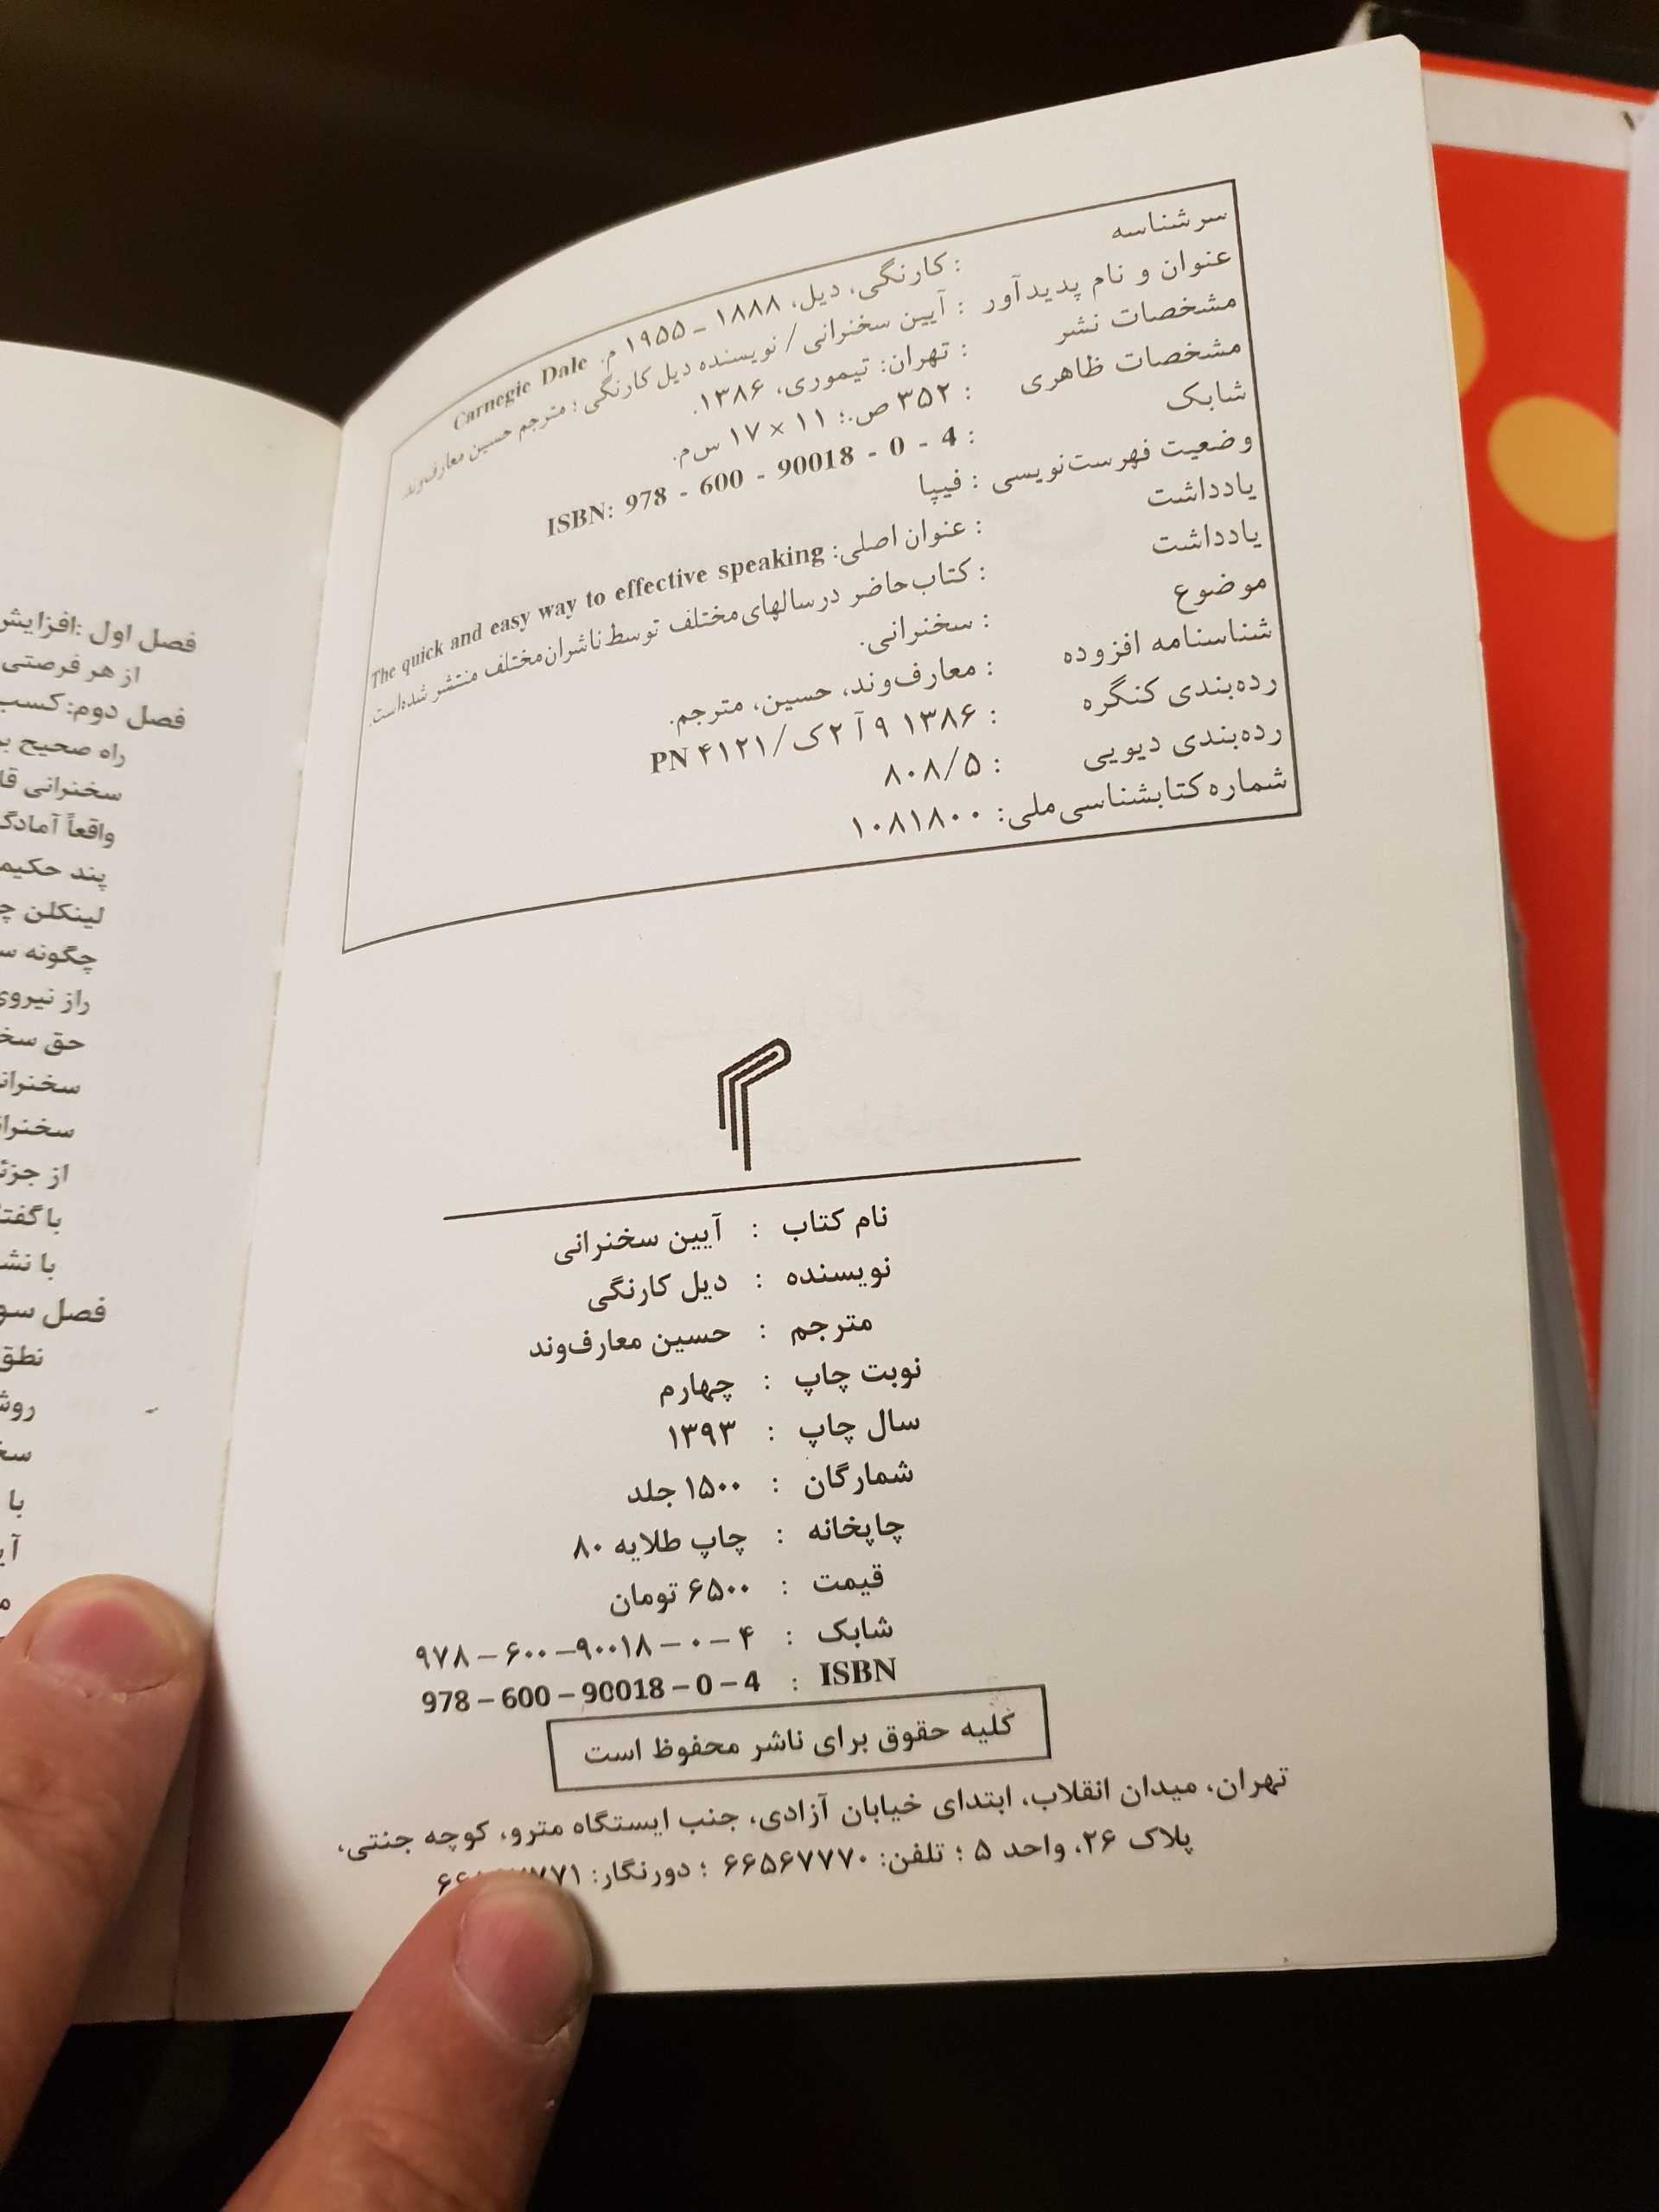 سرشناسه : کارنگی، دیل، ۱۸۸۸ ـ ۱۹۵۵ م. Carnegie Dale
عنوان و نام پدیدآور : آیین سخنرانی / نویسنده دیل کارنگی ؛ مترجم حسین معارف‌وند.
مشخصات نشر : تهران: تیموری، ۱۳۸۶.
مشخصات ظاهری : ۳۵۲ ص.؛ ۱۱ × ۱۷ س‌م.
شابک : ISBN: 978 - 600 - 90018 - 0 - 4
وضعیت فهرست‌نویسی : فیپا
یادداشت : عنوان اصلی: The quick and easy way to effective speaking
یادداشت : کتاب حاضر در سالهای مختلف توسط ناشران مختلف منتشر شده‌است.
موضوع : سخنرانی.
شناسنامه افزوده : معارف‌وند، حسین، مترجم.
رده‌بندی کنگره : ۱۳۸۶ ۹ آ ۲ ک / PN ۴۱۲۱
رده‌بندی دیویی : ۸۰۸/۵
شماره کتابشناسی ملی: ۱۰۸۱۸۰۰
نام کتاب : آیین سخنرانی
نویسنده : دیل کارنگی
مترجم : حسین معارف‌وند
نوبت چاپ : چهارم
سال چاپ : ۱۳۹۳
شمارگان : ۱۵۰۰ جلد
چاپخانه : چاپ طلایه ۸۰
قیمت : ۶۵۰۰ تومان
شابک : ۹۷۸ – ۶۰۰ – ۹۰۰۱۸ – ۰ – ۴
ISBN : 978 – 600 – 90018 – 0 – 4
کلیه حقوق برای ناشر محفوظ است
تهران، میدان انقلاب، ابتدای خیابان آزادی، جنب ایستگاه مترو، کوچه جنتی،
پلاک ۲۶، واحد ۵ ؛ تلفن: ۶۶۵۶۷۷۷۰ ؛ دورنگار:
فصل اول :افزایش
از هر فرصتی
فصل دوم: کسب
راه صحیح
سخنرانی
واقعاً
پند
لینکلن
چگونه
راز نیروی
حق
از
با
فصل
نطق
با